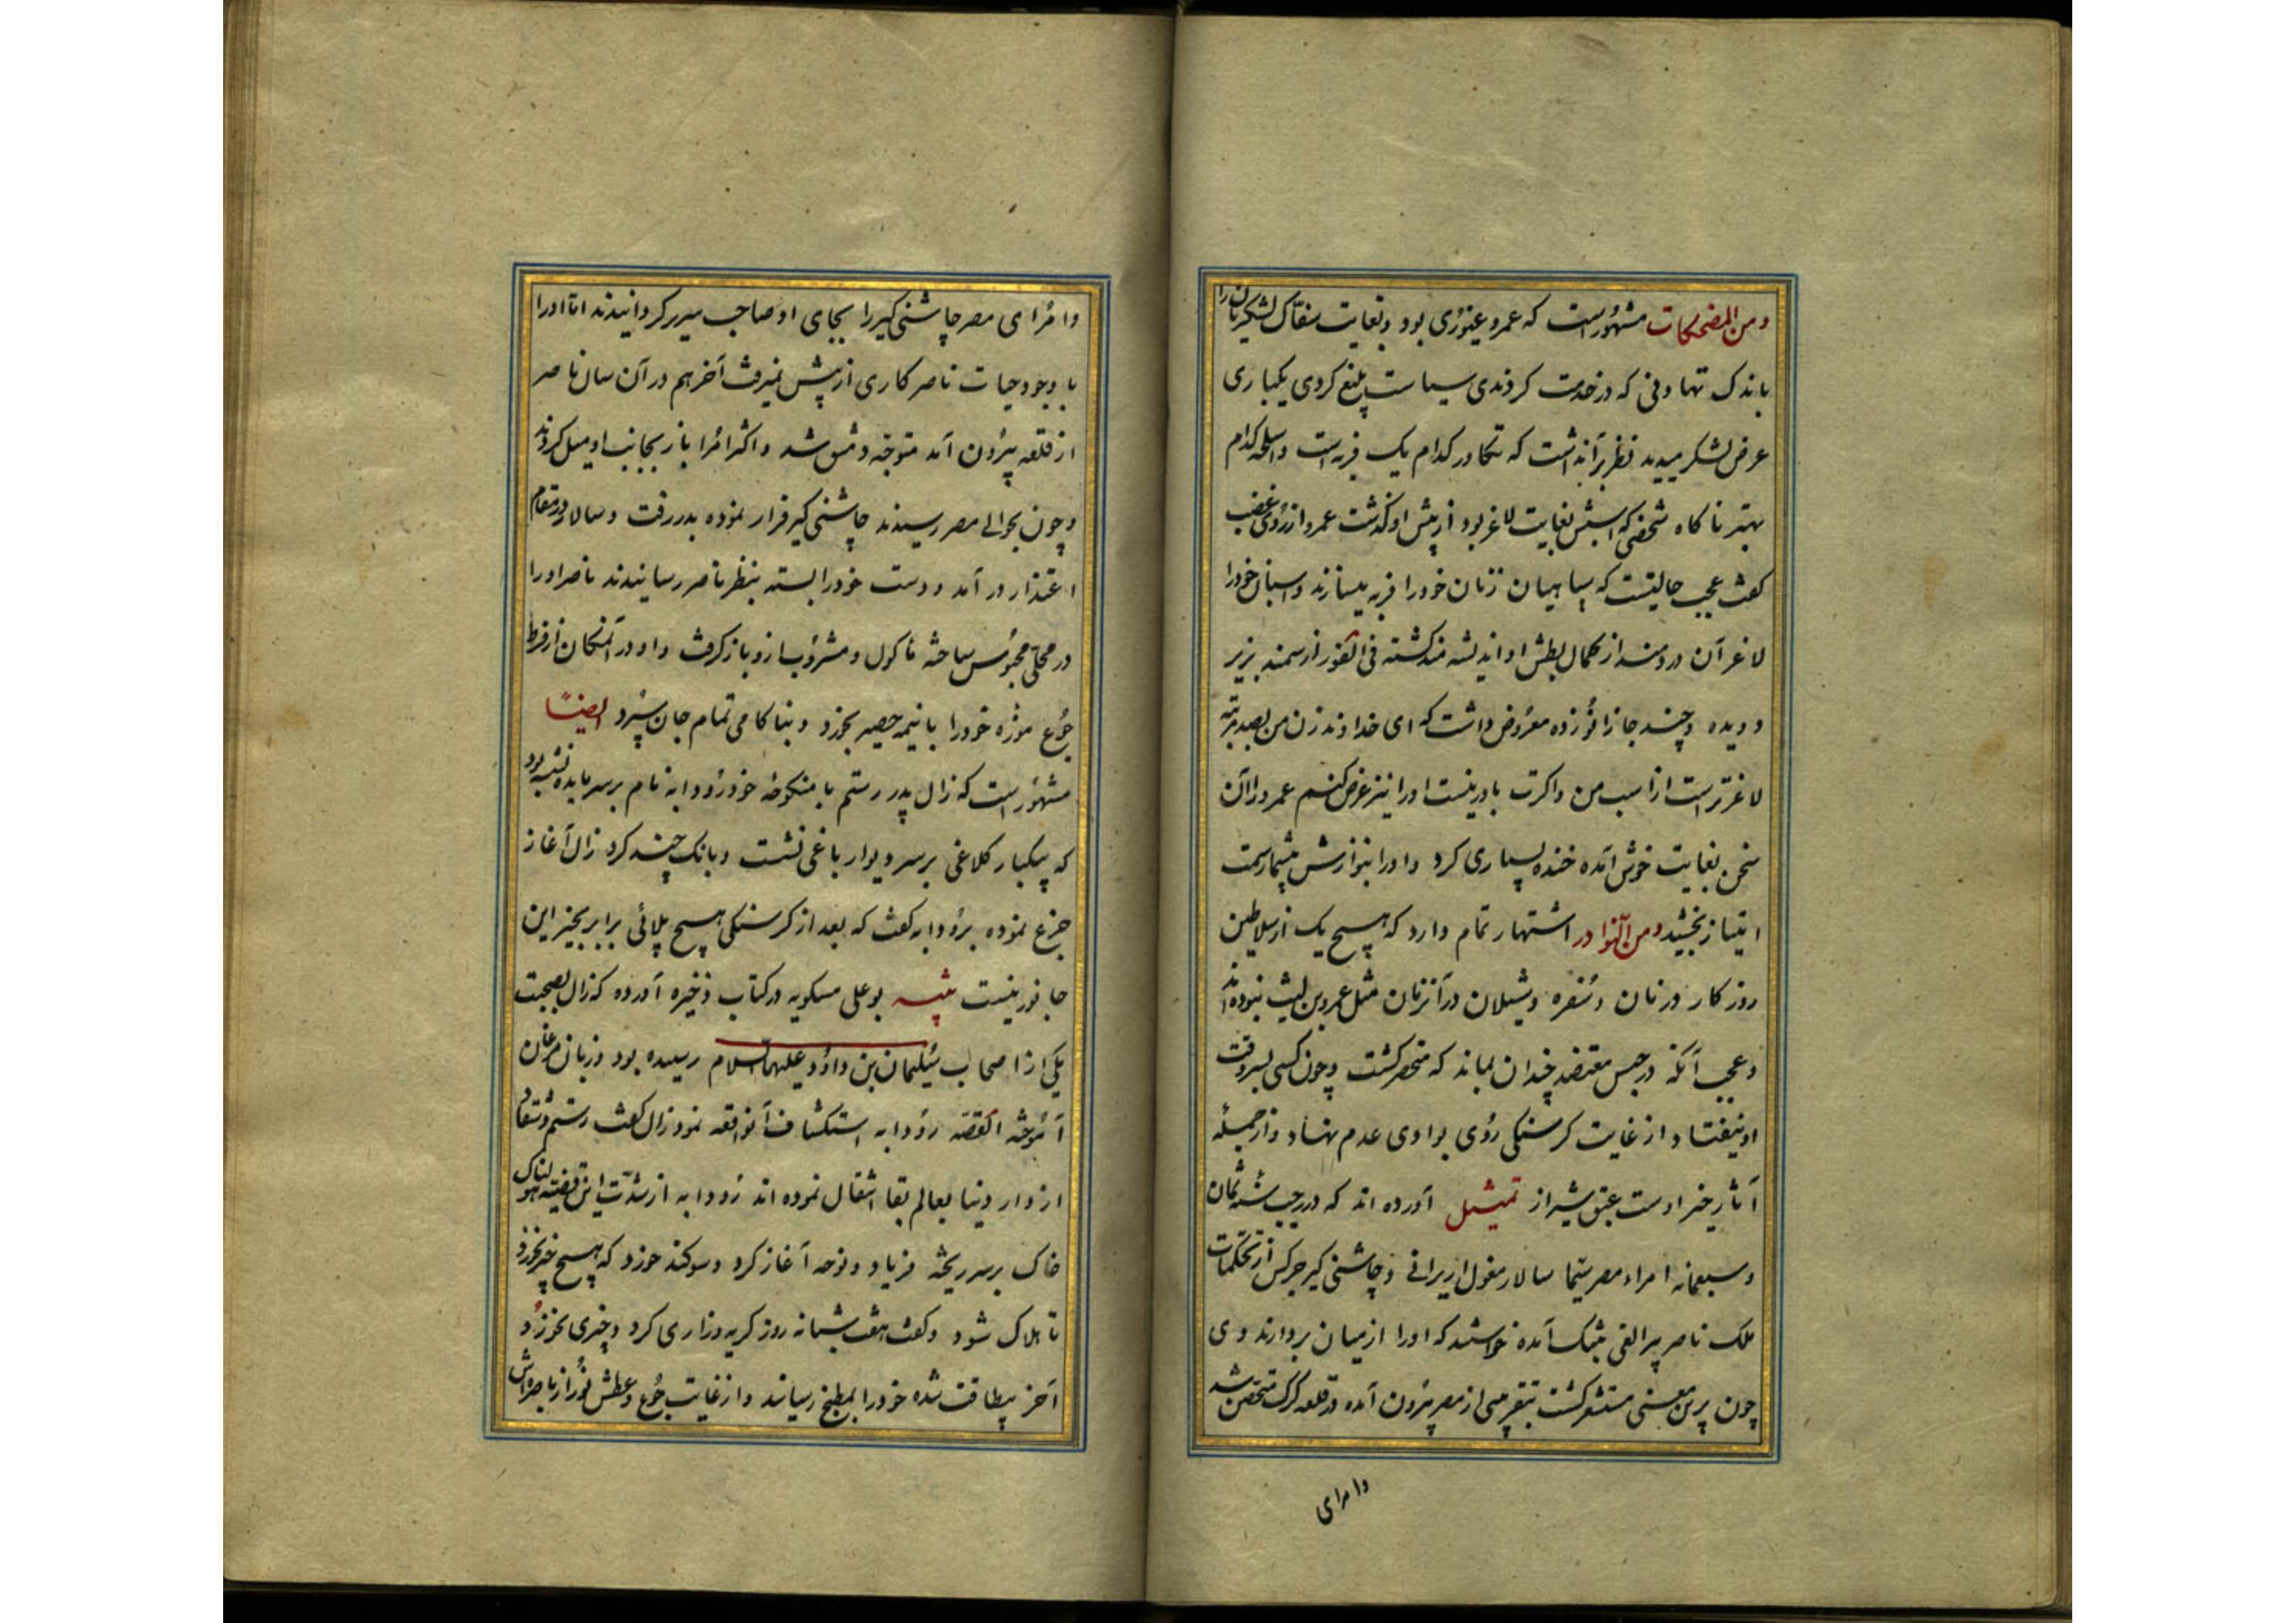 ومن المضحکات مشهورست که عمرو غیوری بود و بغایت سفاک لشکریان را
باندک تهاونی که در خدمت کردندی سیاست بلیغ کردی یکباری
عرض لشکر میدید نظر بر آن داشت که تکاور کدام یک فربه است و اسلحه کدام
بهتر ناکاه شخصی که اسبش بغایت لاغر بود از پیش او گذشت عمرو از روی غضب
گفت عجب حالیست که سپاهیان زنان خود را فربه میسازند و اسبان خود را
لاغر آن دردمند از کمال بطش او اندیشه مند کشته فی الفور از سمند بزیر
دویده و چند جا زانو زده معروض داشت که ای خداوند زن من بصد مرتبه
لاغرترست از اسب من و اکرت باور نیست او را نیز عرض کنم عمرو را آن
سخن بغایت خوش آمده خنده بسیاری کرد و او را بنوازش بیشمار سمت
امتیاز بخشید ومن النوادر اشتهار تمام دارد که هیچ یک از سلاطین
روزکار در نان و سفره و شیلان در آنزمان مثل عمرو بن لیث نبوده اند
و عجب آنکه در حبس معتضد چندان بماند که منحصر کشت و چون کسی بسروقت
او نیفتاد از غایت کرسنکی روی بوادی عدم نهاد و از جمله
آثار خیر اوست عتیق شیراز تمثیل آورده اند که در رجب سنه ثمان
وسبعمائه امراء مصر سیما سالار مغول ازیرانی و چاشنی کیر جرکس از تحکمات
ملک ناصر پیر الفی بتنک آمده خواستند که او را از میان بردارند وی
چون برین معنی مستشعر کشت بتقریبی از مصر بیرون آمده در قلعه کرک متحصن شد
وامرای
وامرای مصر چاشنی کیر را بجای او صاحب سریر کردانیدند اما او را
با وجود حیات ناصر کاری از پیش نمیرفت آخر هم در آن سال ناصر
از قلعه بیرون آمد متوجه دمشق شد و اکثر امرا باز بجانب او میل کردند
و چون بحوالی مصر رسیدند چاشنی کیر فرار نموده بدر رفت و سالار در مقام
اعتذار در آمد و دست خود را بسته بنظر ناصر رسانیدند ناصر او را
در محلی محبوس ساخته ماکول و مشروب ازو باز کرفت و او در آنمکان از فرط
جوع موزه خود را با نیمه حصیر بخورد و بناکامی تمام جان سپرد ایضا
مشهورست که زال پدر رستم با منکوحه خود رودابه نام بر سر مایده نشسته بود
که بیکبار کلاغی بر سر دیوار باغی نشست و بانک چند کرد زال آغاز
جزع نموده برودابه گفت که بعد از کرسنکی هیچ بلائی برابر بخبر این
جانور نیست تنبیه بوعلی مسکویه در کتاب ذخیره آورده که زال بصحبت
یکی از اصحاب سلیمان بن داود علیهما السلام رسیده بود و زبان مرغان
آموخته القصه رودابه استکشاف آنواقعه نمود زال گفت رستم و شقاد
از دار دنیا بعالم بقا انتقال نموده اند رودابه از شدت این قضیه هولناک
خاک بر سر ریخته فریاد و نوحه آغاز کرد و سوکند خورد که هیچ چیز نخورد
تا هلاک شود و گفت هفت شبانه روز کریه و زاری کرد و چیزی نخورد و
آخر بیطاقت شده خود را بمطبخ رسانید و از غایت جوع و عطش نور از باصره اش